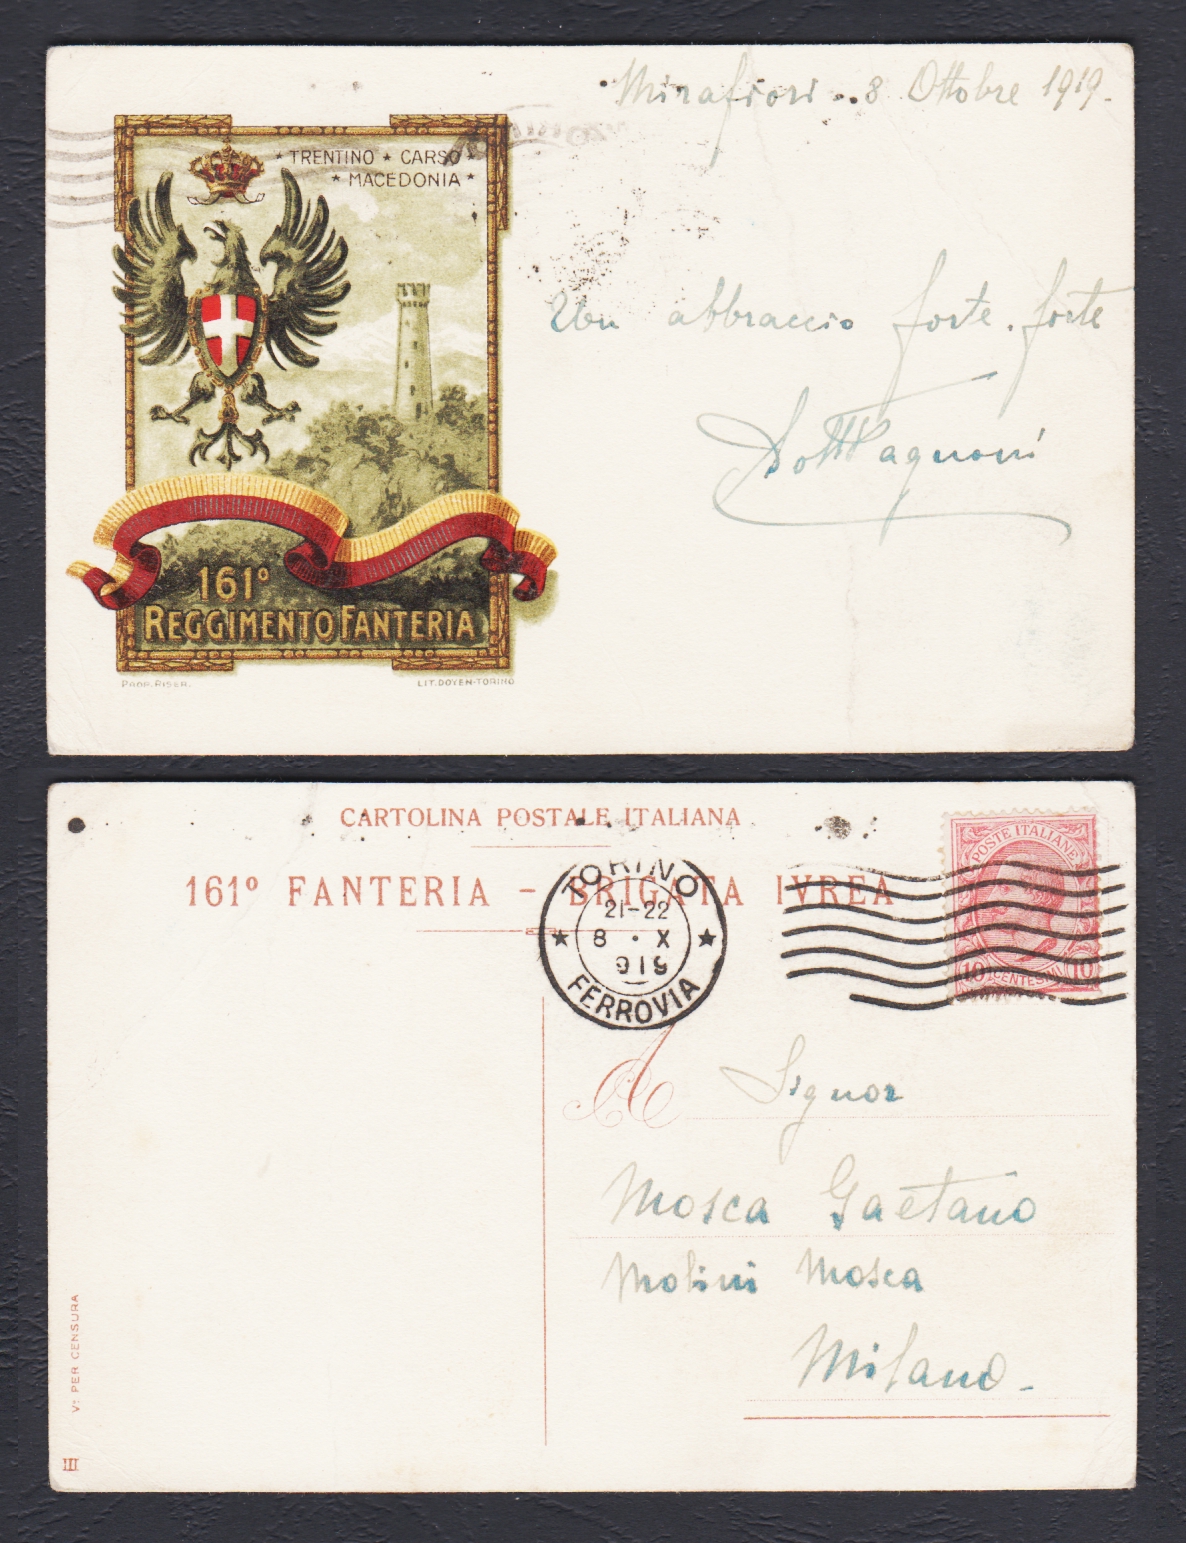 Mirafiori.. 8 Ottobre 1919.
★ TRENTINO ★ CARSO ★
★ MACEDONIA ★
Un abbraccio forte. forte
Dott Pagnoni
161º
REGGIMENTO FANTERIA
PROP. RISER.
LIT. DOYEN-TORINO
CARTOLINA POSTALE ITALIANA
161º FANTERIA - BRIGATA IVREA
TORINO
21-22
8 · X
919
FERROVIA
POSTE ITALIANE
10 CENTESIMI 10
A Signor
Mosca Gaetano
Molini Mosca
Milano -
Vº PER CENSURA
III